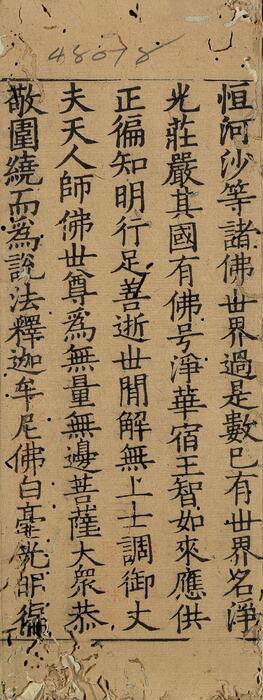 48078
恒河沙等諸佛世界過是數已有世界名淨
光莊嚴其國有佛号淨華宿王智如來應供
正徧知明行足善逝世閒解無上士調御丈
夫天人師佛世尊爲無量無邊菩薩大衆恭
敬圍繞而爲說法釋迦牟尼佛白毫光明徧